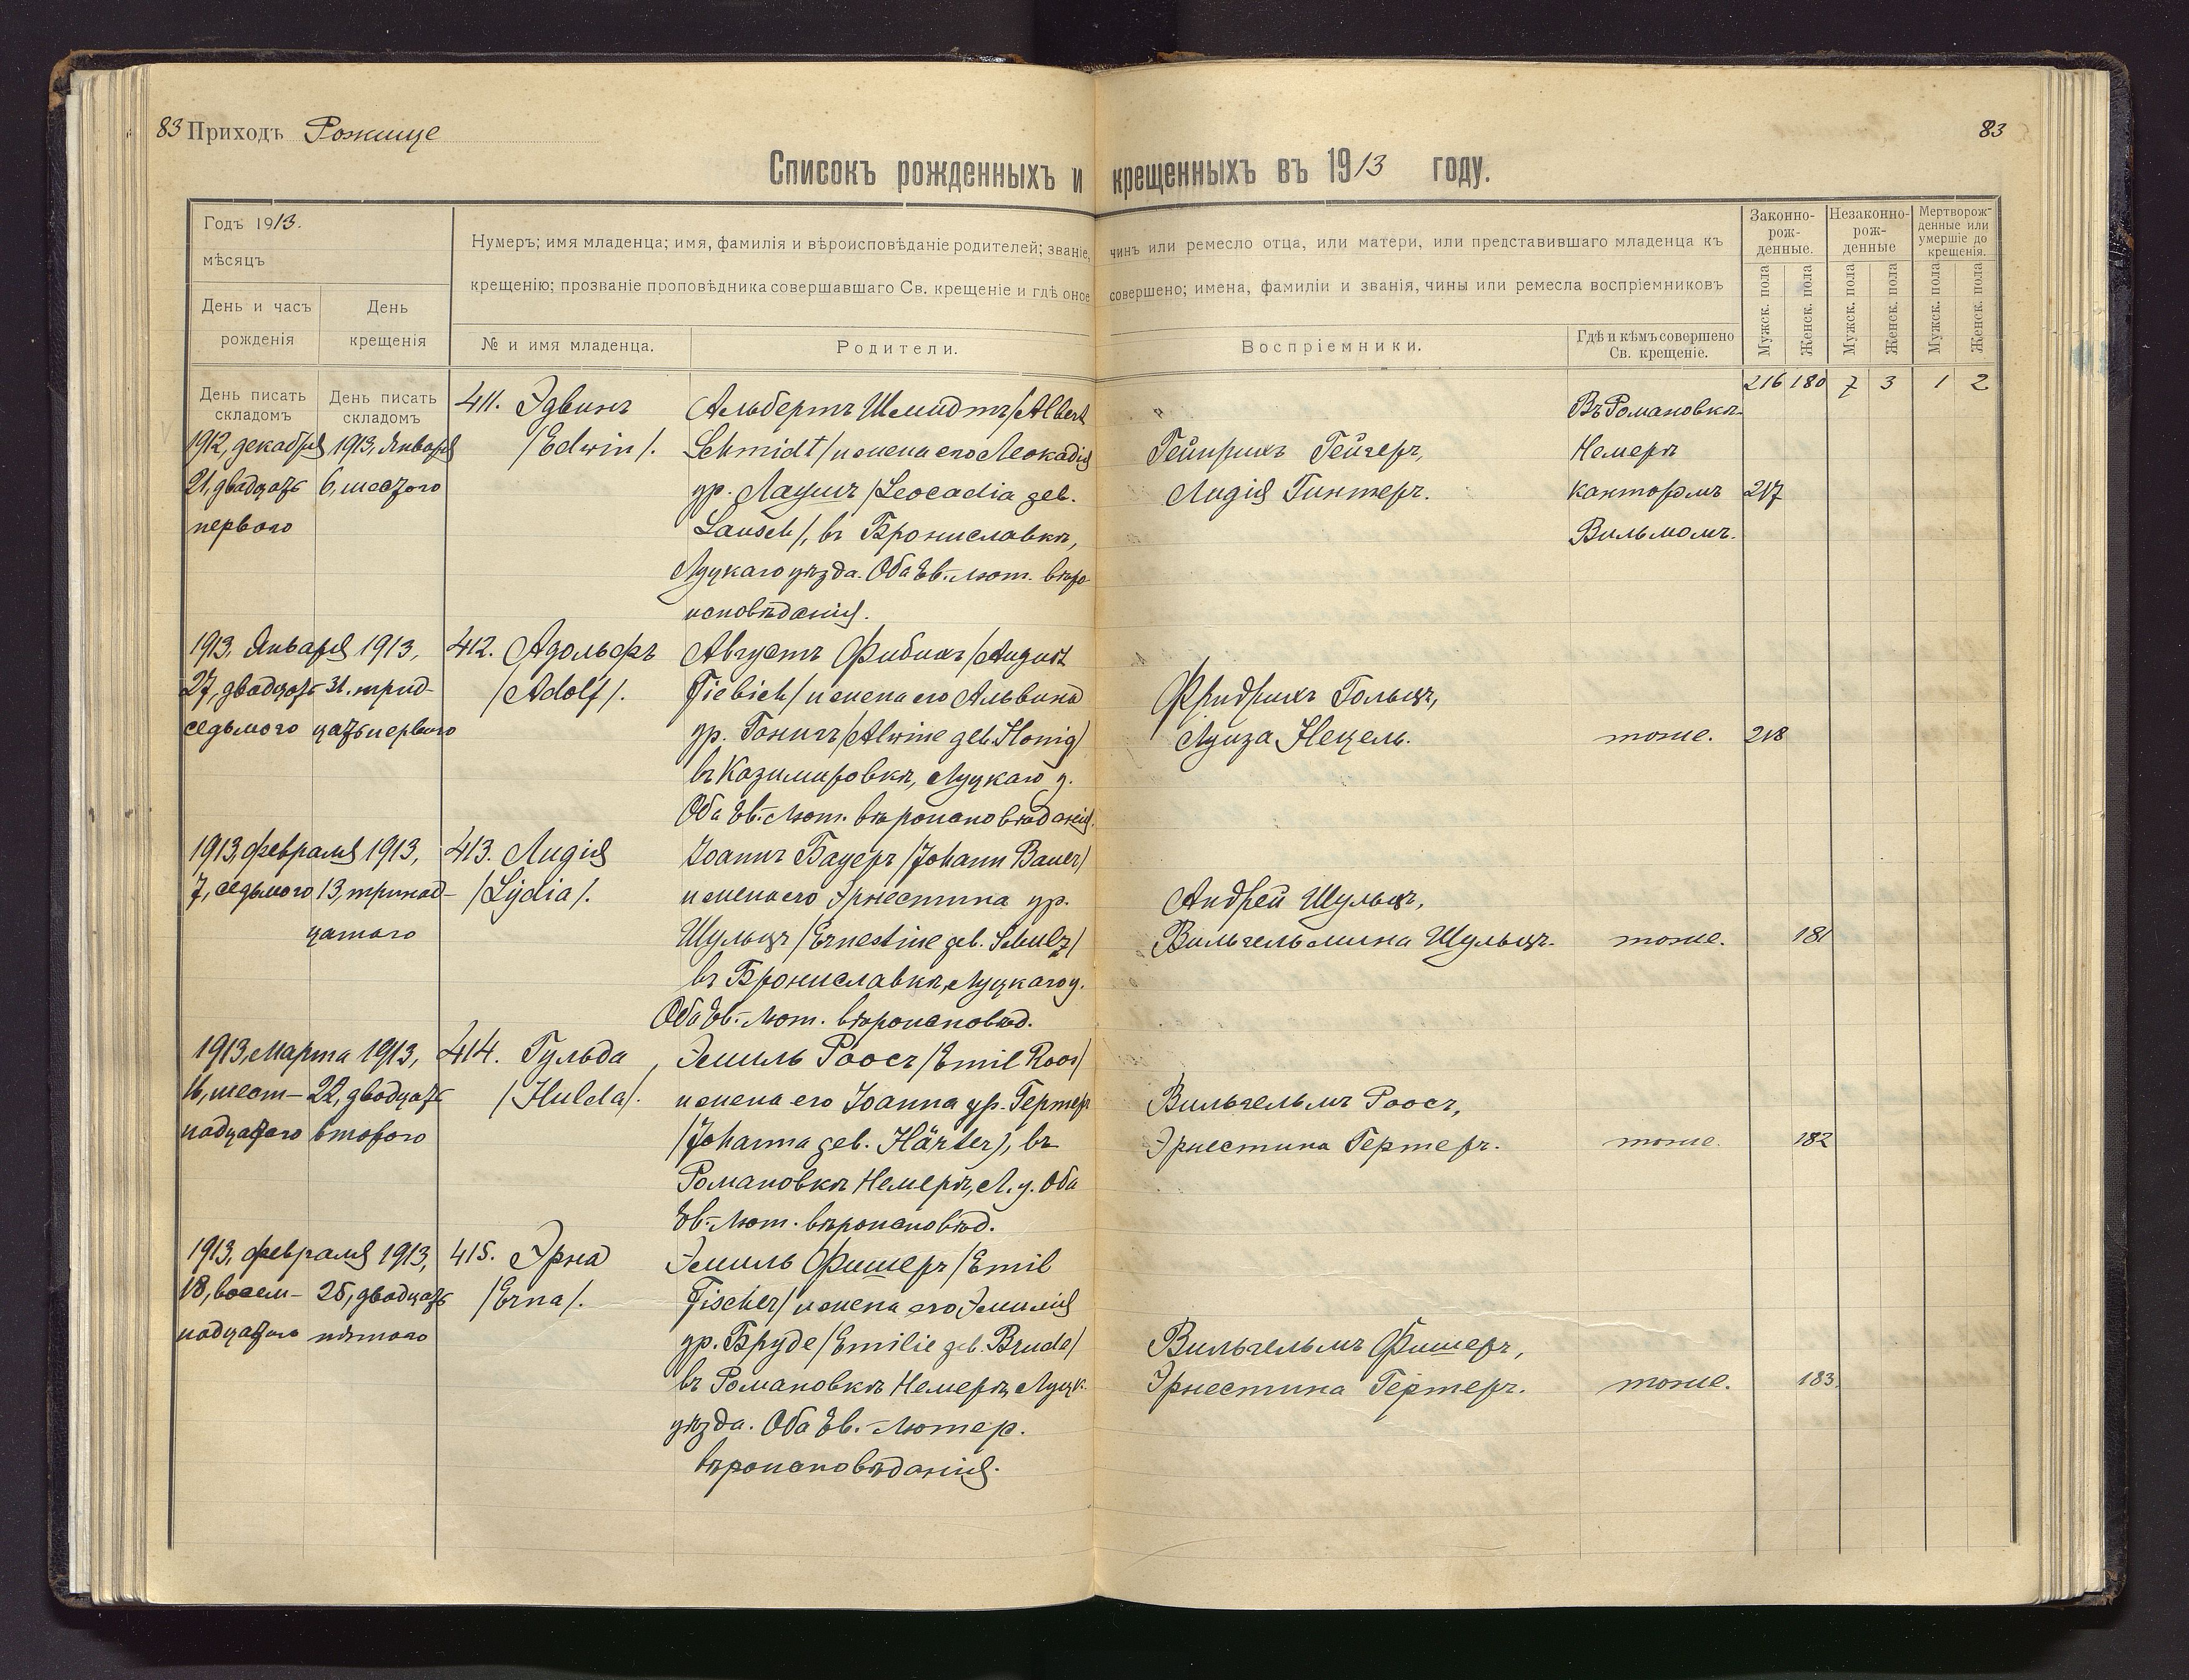 83 Приходъ Рожище
83
Списокъ рожденныхъ и крещенныхъ въ 1913 году.
Годъ 1913.
мѣсяцъ
День и часъ рожденія
День крещенія
Нумеръ; имя младенца; имя, фамилія и вѣроисповѣданіе родителей; званіе, чинъ или ремесло отца, или матери, или представившаго младенца къ
крещенію; прозваніе проповѣдника совершавшаго Св. крещеніе и гдѣ оное совершено; имена, фамиліи и званія, чины или ремесла воспріемниковъ
№ и имя младенца.
Родители.
Воспріемники.
Гдѣ и кѣмъ совершено
Св. крещеніе.
Законно-
рож-
денные.
Незаконно-
рож-
денные
Мертворож-
денные или
умершіе до
крещенія.
Мужск. пола
Женск. пола
Мужск. пола
Женск. пола
Мужск. пола
Женск. пола
216 180 7 3 1 2
День писать
складомъ
День писать
складомъ
1912, декабря
21, двадцать
первого
1913, Января
6, шестого
411. Эдвинъ
/Edwin/.
Альбертъ Шмидтъ /Albert
Schmidt/ и жена его Леокадія
ур. Лаушъ /Leocadia geb.
Lausch/, въ Брониславкѣ,
Луцкаго уѣзда. Оба Ев.-лют. вѣро-
исповѣданія.
Гейнрихъ Гейгеръ,
Лидія Гинтеръ.
Въ Романовкѣ-
Немерѣ
канторомъ
Вильмомъ.
217
1913, Января
27, двадцать
седьмого
1913,
31. трид-
цать первого
412. Адольфъ
/Adolf/.
Августъ Фибихъ /August
Fiebich/ и жена его Альвина
ур. Гонигъ /Alwine geb. Honig/
въ Казимировкѣ, Луцкаго у.
Оба Ев.-Лют. вѣроисповѣданія.
Фридрихъ Гольцъ,
Луиза Нецель.
тоже.
218
1913, февраля
7, седьмого
1913,
13, тринад-
цатого
413. Лидія
/Lydia/.
Іоаннъ Бауеръ /Johann Bauer/
и жена его Эрнестина ур.
Шульцъ /Ernestine geb. Schulz/
въ Брониславкѣ, Луцкаго у.
Оба Ев.-Лют. вѣроисповѣд.
Андрей Шульцъ,
Вильгельмина Шульцъ.
тоже.
181
1913, Марта
16, шест-
надцатого
1913,
22, двадцать
второго
414. Гульда
/Hulda/.
Эмиль Роосъ /Emil Roos/
и жена его Іоанна ур. Гертеръ
/Johanna geb. Härter/, въ
Романовкѣ Немерѣ, Л. у. Оба
Ев.-Лют. вѣроисповѣд.
Вильгельмъ Роосъ,
Эрнестина Гертеръ.
тоже.
182
1913, февраля
18, восем-
надцатого
1913,
25, двадцать
пятого
415. Эрна
/Erna/.
Эмиль Фишеръ /Emil
Fischer/ и жена его Эмилія
ур. Бруде /Emilie geb. Brude/
въ Романовкѣ Немерѣ, Луцк.
уѣзда. Оба Ев.-Лютер.
вѣроисповѣданія.
Вильгельмъ Фишеръ,
Эрнестина Гертеръ.
тоже.
183.